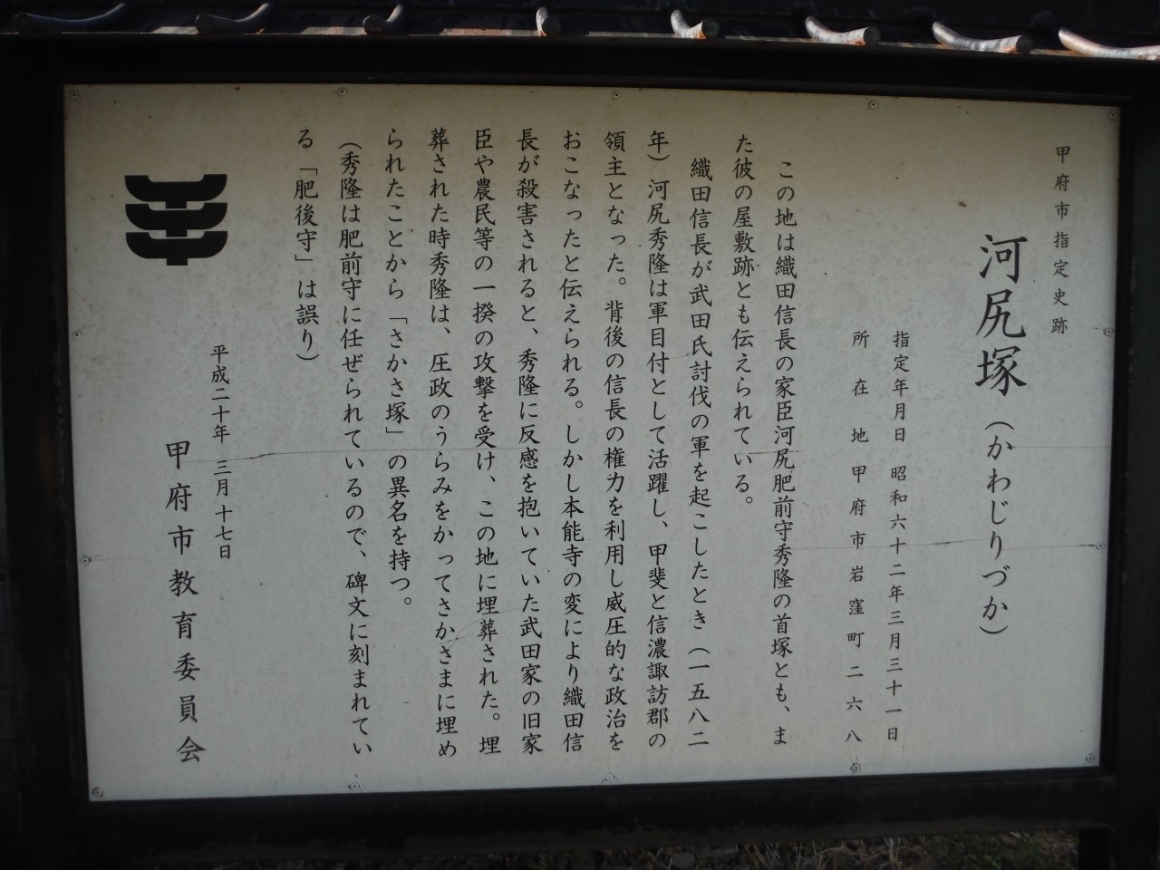 甲府市指定史跡
河尻塚（かわじりづか）
指定年月日 昭和六十二年三月三十一日
所在地 甲府市岩窪町二六八
この地は織田信長の家臣河尻肥前守秀隆の首塚とも、ま
た彼の屋敷跡とも伝えられている。
織田信長が武田氏討伐の軍を起こしたとき（一五八二
年）河尻秀隆は軍目付として活躍し、甲斐と信濃諏訪郡の
領主となった。背後の信長の権力を利用し威圧的な政治を
おこなったと伝えられる。しかし本能寺の変により織田信
長が殺害されると、秀隆に反感を抱いていた武田家の旧家
臣や農民等の一揆の攻撃を受け、この地に埋葬された。埋
葬された時秀隆は、圧政のうらみをかってさかさまに埋め
られたことから「さかさ塚」の異名を持つ。
（秀隆は肥前守に任ぜられているので、碑文に刻まれてい
る「肥後守」は誤り）
平成二十年 三月十七日
甲府市教育委員会